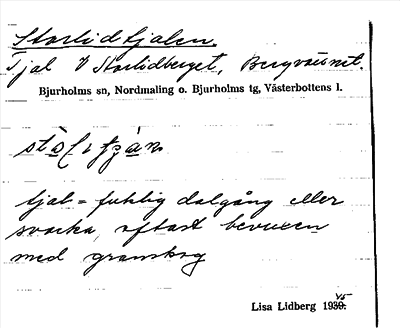 Storlidtjalen.
Tjal V Storlidberget, Bergvattnet.
Bjurholms sn, Nordmaling o. Bjurholms tg, Västerbottens l.
tjal = fuktig dalgång eller
svacka, oftast bevuxen
med granskog
Lisa Lidberg 1945.